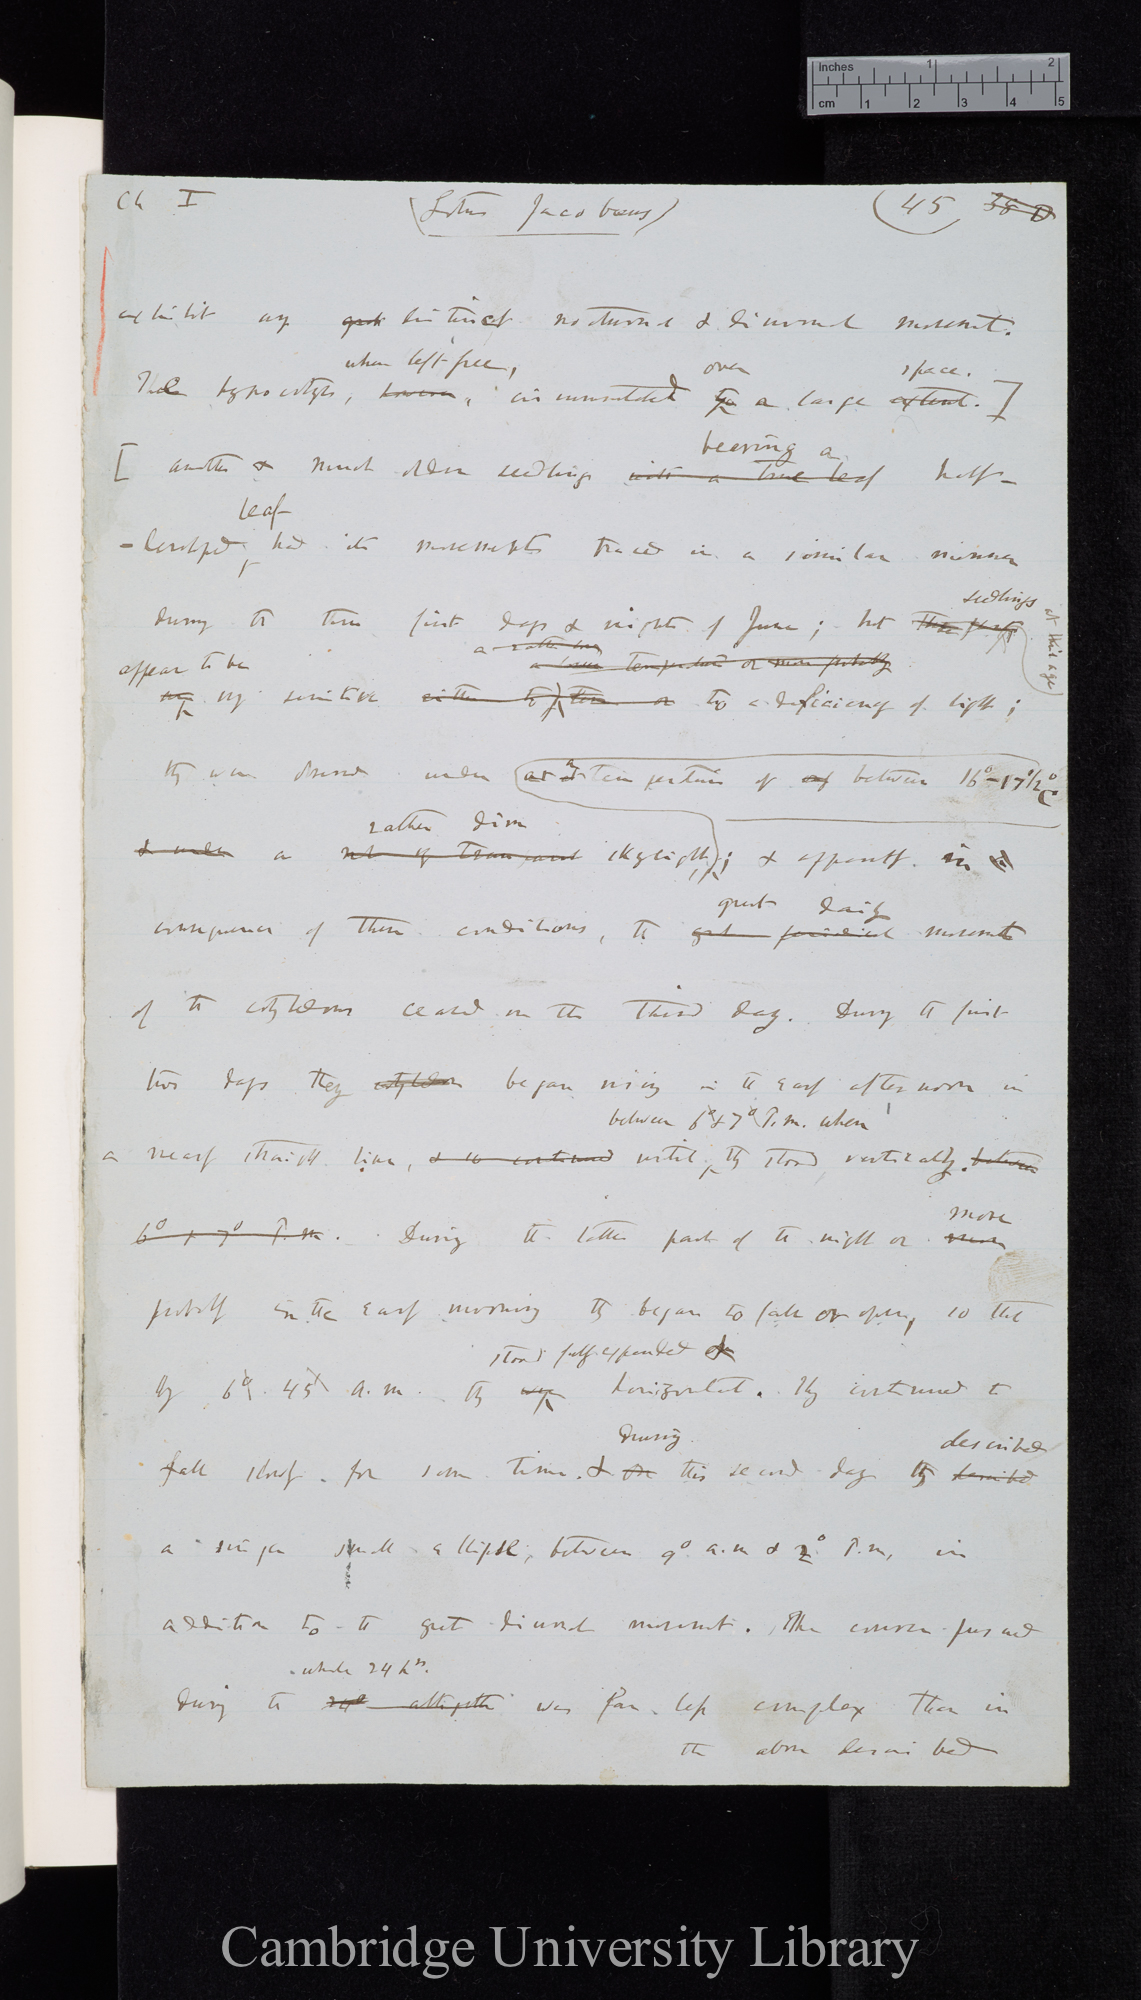 Inches 1 2
cm 1 2 3 4 5
Ch I (Lotus Jacobæus) (45 38 D
exhibit any great distinct nocturnal & diurnal movement.
when left free, over space.
Their hypocotyls, however, circumnutated to a large extent.]
bearing a
[another & much older seedlings with a true leaf half-
leaf
-developed, had its movements traced in a similar manner
seedlings
during the three first days & nights of June; but these plants at this age
a rather low
appear to be a lower temperature or more probably
very sensitive either to to a deficiency of light;
they were observed under a temperature of between 16°-17½° C
rather dim
& under a skylight; & apparently in
great daily
consequence of these conditions, the great periodical movements
of the cotyledons ceased on the third day. During the first
two days they cotyledons began rising in the early afternoon in
between 6° & 7° P.m. when
a nearly straight line, & so continued until they stood vertically. between
6° & 7° P.m. During the latter part of the night or more
more
probably in the early morning they began to fall or open, so that
stood fully expanded &
by 6° 45' a.m. they were horizontal. They continued to
during described
fall slowly for some time. & on this second day they described
a single small ellipse, between 9° a.m & 2° P.m, in
addition to the great diurnal movement. The course pursued
whole 24 hrs.
during the day altogether was far less complex than in
the above described
Cambridge University Library